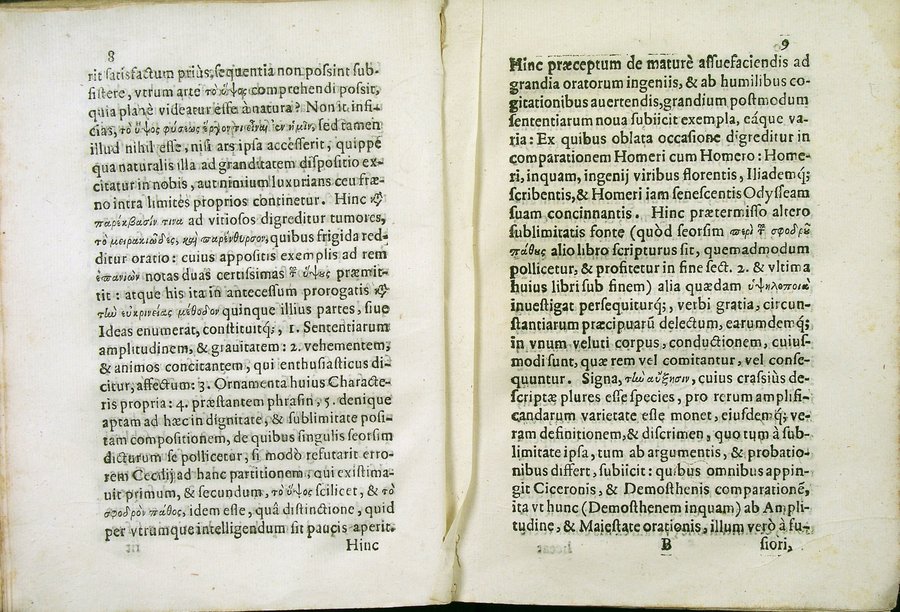 8
rit satisfactum priùs, sequentia non possint sub-
sistere, vtrum arte τὸ ὕψος comprehendi possit,
quia planè videatur esse à natura? Non it infi-
cias, τὸ ὕψος φύσεως ἔργον τι εἶναι ἐν ἡμῖν, sed tamen
illud nihil esse, nisi ars ipsa accesserit, quippe
qua naturalis illa ad granditatem dispositio ex-
citatur in nobis, aut nimium luxurians ceu fræ-
no intra limites proprios continetur. Hinc κατὰ
παρέκβασίν τινα ad vitiosos digreditur tumores,
τὸ μειρακιῶδες, καὶ παρένθυρσον, quibus frigida red-
ditur oratio: cuius appositis exemplis ad rem
ἐπανιὼν notas duas certissimas τοῦ ὕψους præmit-
tit: atque his ita in antecessum prorogatis κατὰ
τὴν εὐκρινείας μέθοδον quinque illius partes, siue
Ideas enumerat, constituitq́;, 1. Sententiarum
amplitudinem, & grauitatem: 2. vehementem,
& animos concitantem, qui enthusiasticus di-
citur, affectum: 3. Ornamenta huius Characte-
ris propria: 4. præstantem phrasin, 5. denique
aptam ad hæc in dignitate, & sublimitate posi-
tam compositionem, de quibus singulis seorsim
dicturum se pollicetur, si modò refutarit erro-
rem Cecilij ad hanc partitionem, qui existima-
uit primum, & secundum, τὸ ὕψος scilicet, & τὸ
σφοδρὸν πάθος, idem esse, quâ distinctione, quid
per vtrumque intelligendum sit paucis aperit.
Hinc
9
Hinc præceptum de maturè assuefaciendis ad
grandia oratorum ingeniis, & ab humilibus co-
gitationibus auertendis, grandium postmodum
sententiarum noua subiicit exempla, eáque va-
ria: Ex quibus oblata occasione digreditur in
comparationem Homeri cum Homero: Home-
ri, inquam, ingenij viribus florentis, Iliademq́;
scribentis, & Homeri iam senescentis Odysseam
suam concinnantis. Hinc prætermisso altero
sublimitatis fonte (quòd seorsim περὶ τοῦ σφοδροῦ
πάθους alio libro scripturus sit, quemadmodum
pollicetur, & profitetur in fine sect. 2. & vltima
huius libri sub finem) alia quædam ὑψηλοποιὰ
inuestigat persequiturq́;, verbi gratia, circun-
stantiarum præcipuarũ delectum, earumdemq́;
in vnum veluti corpus, conductionem, cuius-
modi sunt, quæ rem vel comitantur, vel conse-
quuntur. Signa, τὴν αὔξησιν, cuius crassiùs de-
scriptæ plures esse species, pro rerum amplifi-
candarum varietate esse monet, eiusdemq́; ve-
ram definitionem, & discrimen, quo tum à sub-
limitate ipsa, tum ab argumentis, & probatio-
nibus differt, subiicit: quibus omnibus appin-
git Ciceronis, & Demosthenis comparationẽ,
ita vt hunc (Demosthenem inquam) ab Ampli-
tudine, & Maiestate orationis, illum verò à fu-
B fiori,